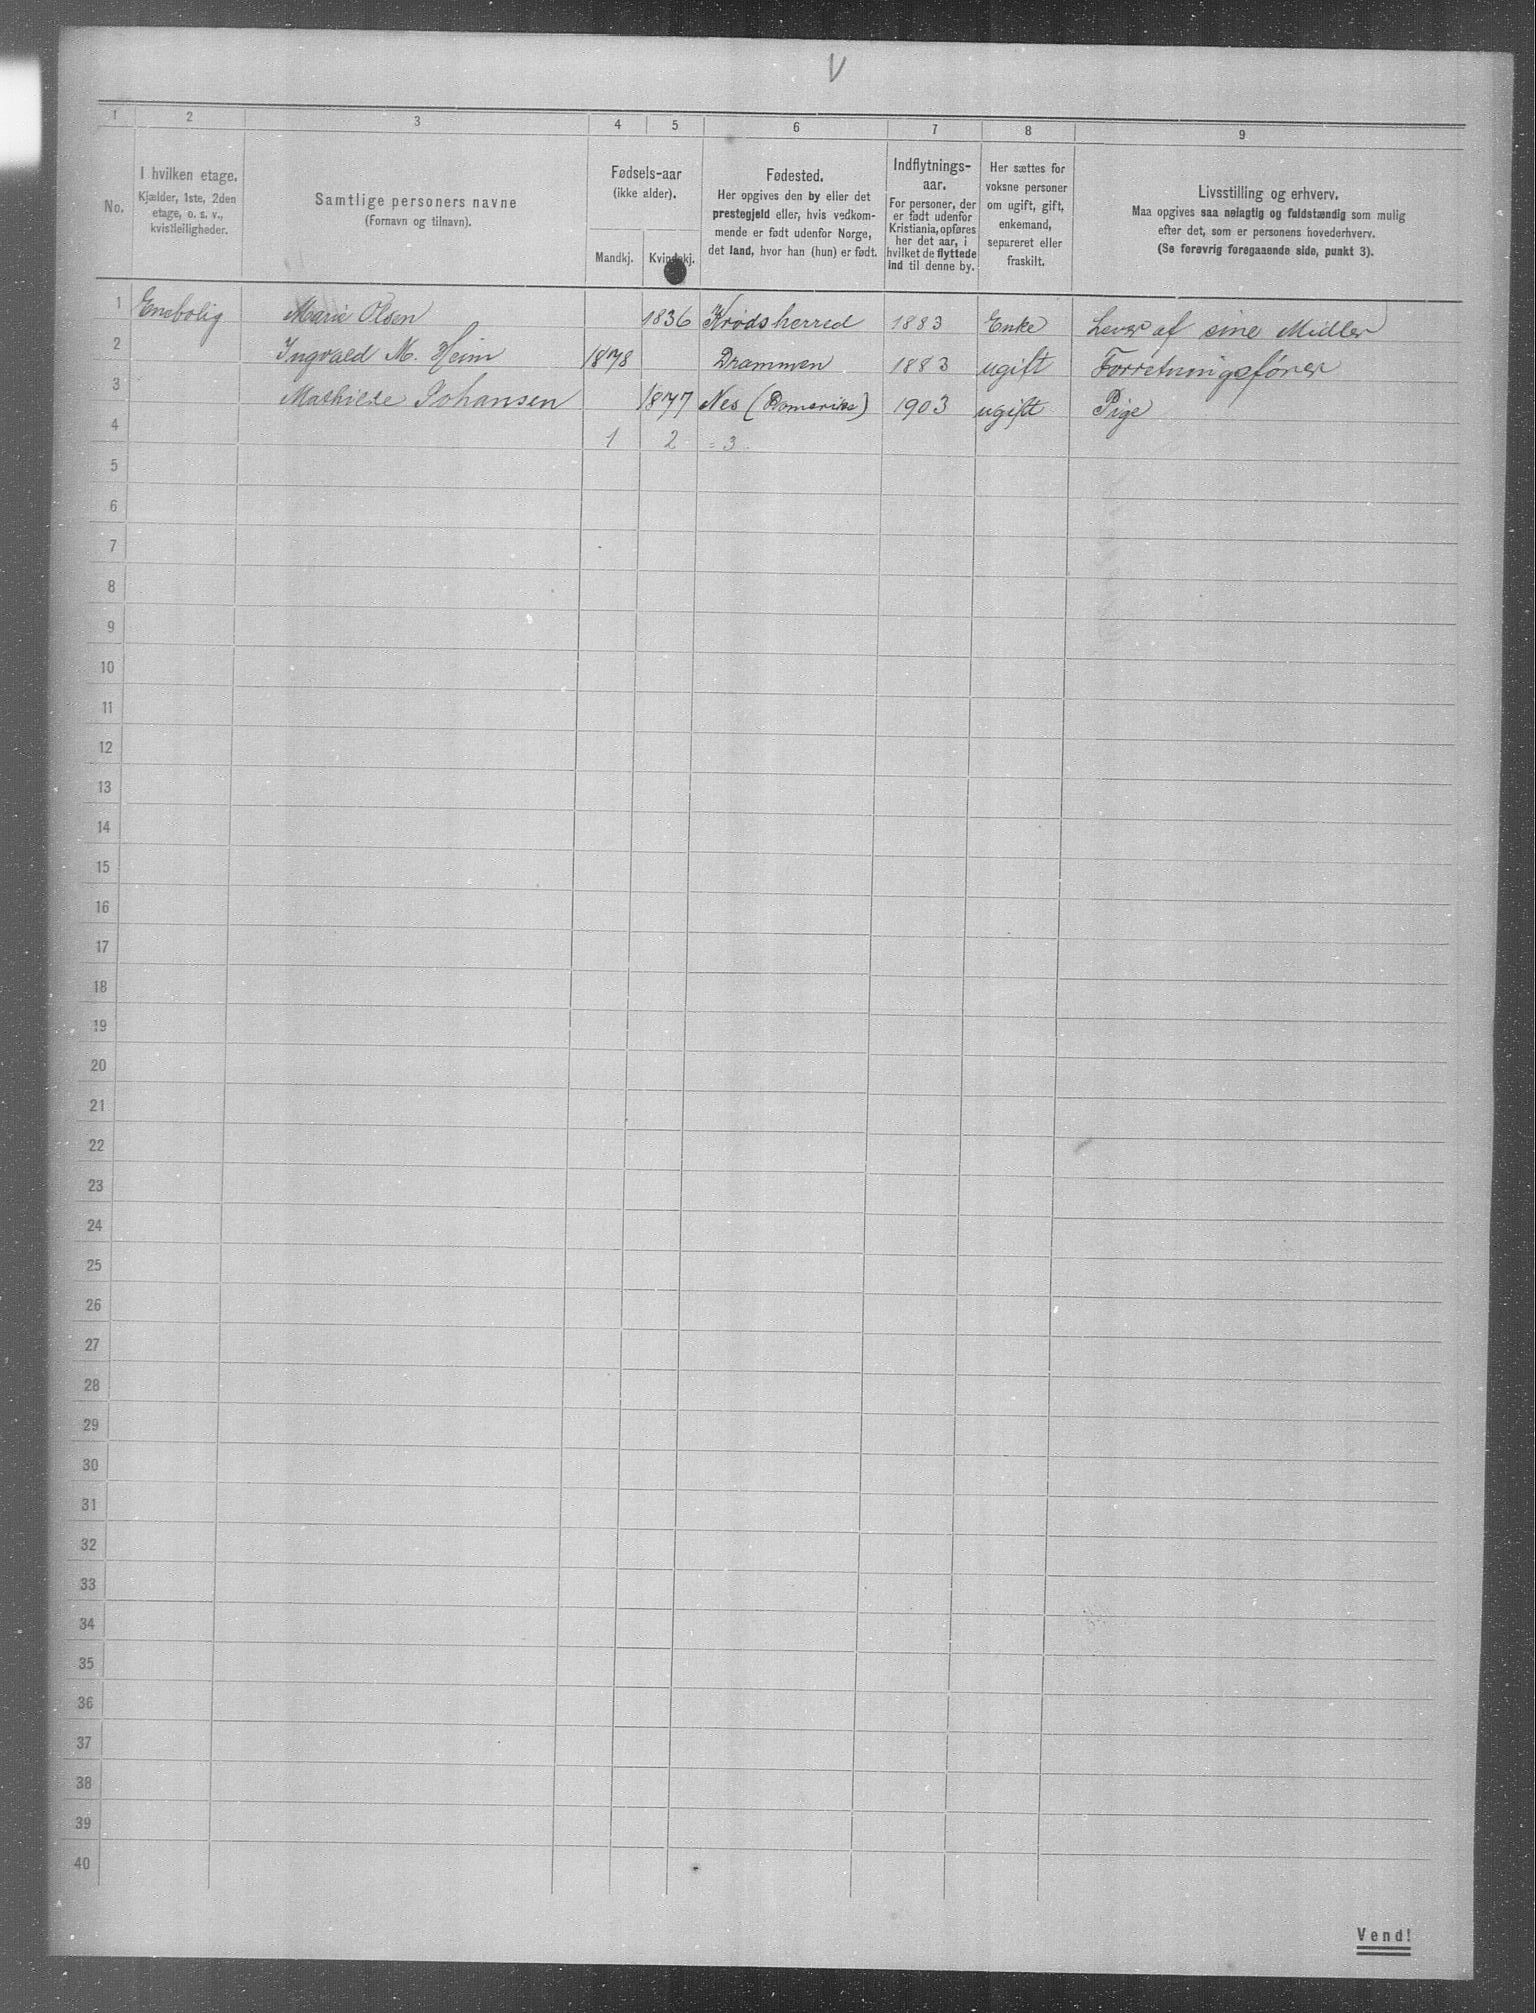 V
1 2 3 4 5 6 7 8 9
No.
I hvilken etage.
Kjælder, 1ste, 2den
etage, o. s. v.,
kvistleiligheder.
Samtlige personers navne
(Fornavn og tilnavn).
Fødsels-aar
(ikke alder).
Mandkj. Kvindekj.
Fødested.
Her opgives den by eller det
prestegjeld eller, hvis vedkom-
mende er født udenfor Norge,
det land, hvor han (hun) er født.
Indflytnings-
aar.
For personer, der
er født udenfor
Kristiania, opføres
her det aar, i
hvilket de flyttede
ind til denne by.
Her sættes for
voksne personer
om ugift, gift,
enkemand,
separeret eller
fraskilt.
Livsstilling og erhverv.
Maa opgives saa nøiagtig og fuldstændig som mulig
efter det, som er personens hovederhverv.
(Se forøvrig foregaaende side, punkt 3).
1 Enebolig Marie Olsen 1836 Krødsherred 1883 Enke Lever af sine Midler
2 Ingvald M. Heim 1878 Drammen 1883 ugift Forretningsfører
3 Mathilde Johansen 1877 Nes (Romerike) 1903 ugift Pige
4 1 2 = 3
5
6
7
8
9
10
11
12
13
14
15
16
17
18
19
20
21
22
23
24
25
26
27
28
29
30
31
32
33
34
35
36
37
38
39
40
Vend!